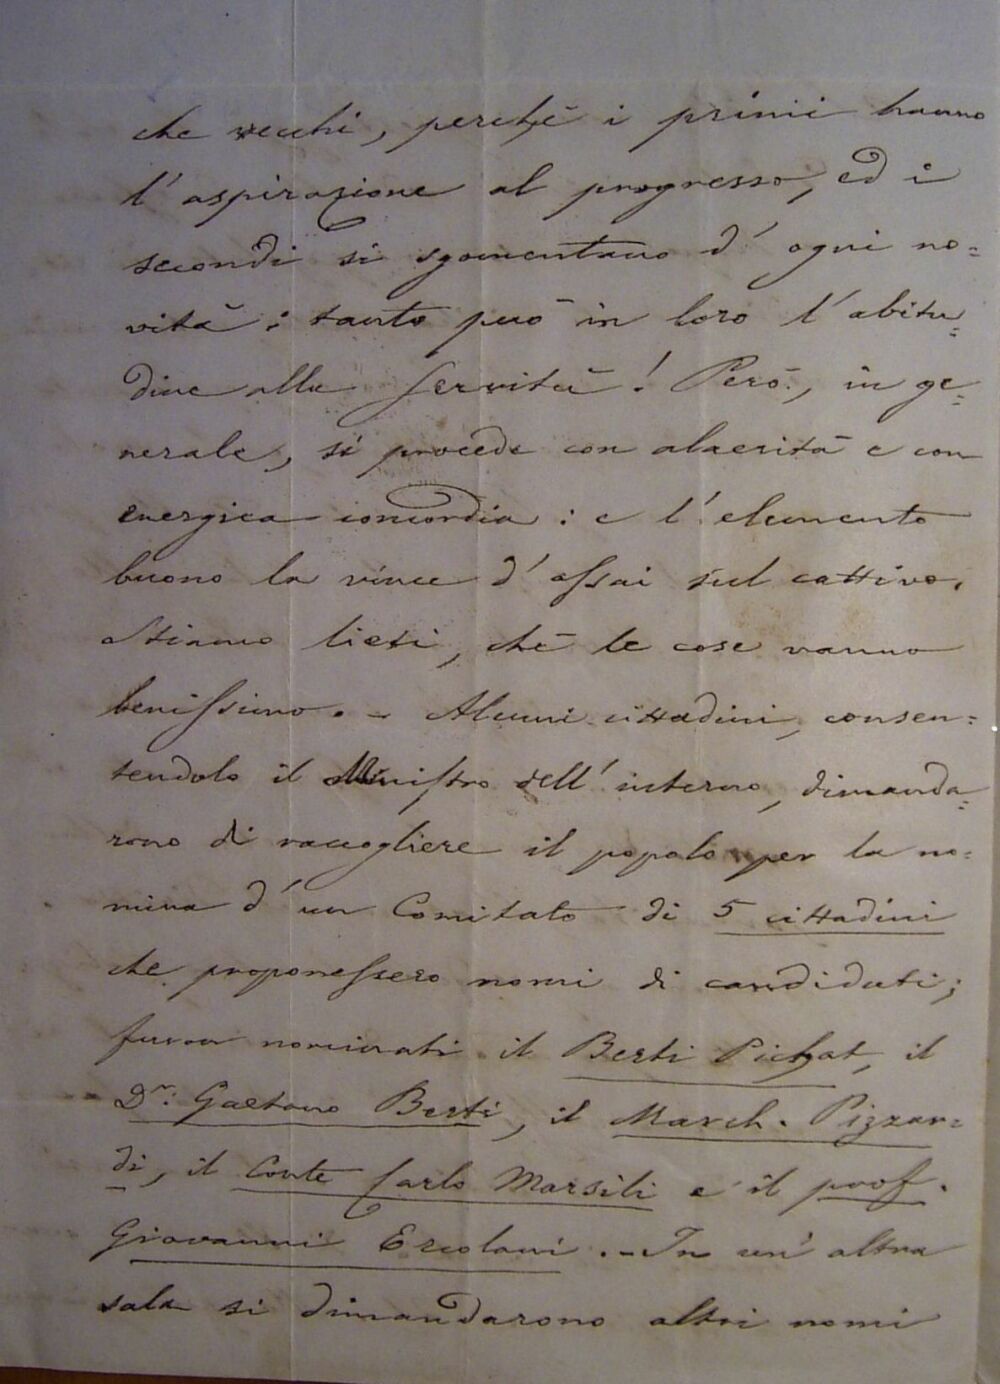 che vecchi, perchè i primi hanno
l'aspirazione al progresso, ed i
secondi si sgomentano d'ogni no=
vità: tanto può in loro l'abitu=
dine alla servitù! Però, in ge=
nerale, si procede con alacrità e con
energica concordia: e l'elemento
buono la vince d'assai sul cattivo.
Stiamo lieti, chè le cose vanno
benissimo. - Alcuni cittadini, consen=
tendolo il Ministro dell'interno, dimanda=
rono di raccogliere il popolo per la no=
mina d'un Comitato di 5 cittadini
che proponessero nomi di candidati;
furon nominati il Berti Pichat, il
Dr. Gaetano Berti, il March. Pizzar=
di, il Conte Carlo Marsili e il prof.
Giovanni Ercolani. - In un'altra
sala si dimandarono altri nomi